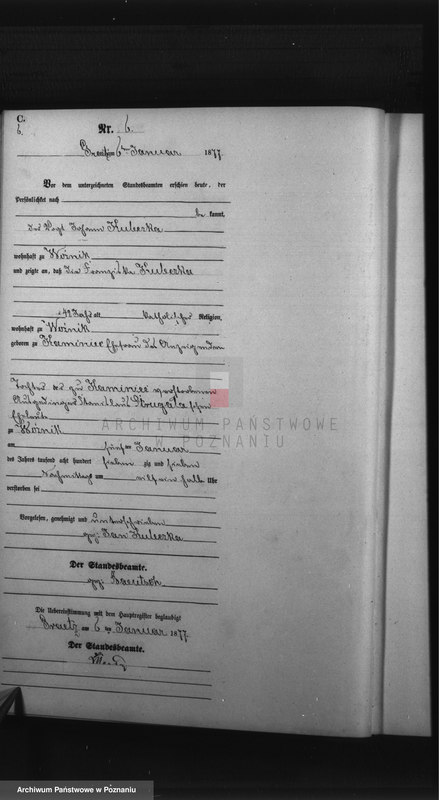 C.
6.
Nr. 6.
6ten Januar 1877.
Vor dem unterzeichneten Standesbeamten erschien heute, der
Persönlichkeit nach
be kannt,
der Vogt Johann Kuberka
wohnhaft zu Woznik
und zeigte an, daß die Franziska Kuberka
42 Jahr alt, katholischer Religion,
wohnhaft zu Woznik
geboren zu Kaminiec Ehefrau des Anzeigenden
Tochter der zu Kaminiec verstorbenen
Eheleute
zu Woznik
am fünften Januar
des Jahres tausend acht hundert sieben zig und sieben
Nachmittags um halb Uhr
verstorben sei
Vorgelesen, genehmigt und unterschrieben
gez: Jan Kuberka
Der Standesbeamte.
gez:
Die Uebereinstimmung mit dem Hauptregister beglaubigt
Graetz am 6 ten Januar 1877.
Der Standesbeamte.
ARCHIWUM PAŃSTWOWE
W POZNANIU
Archiwum Państwowe w Poznaniu